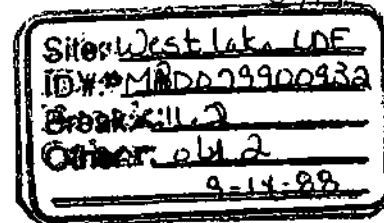 Site: West lake LDF
ID #: MOD079900932
Break: 11.2
Other: ou 2
9-14-88